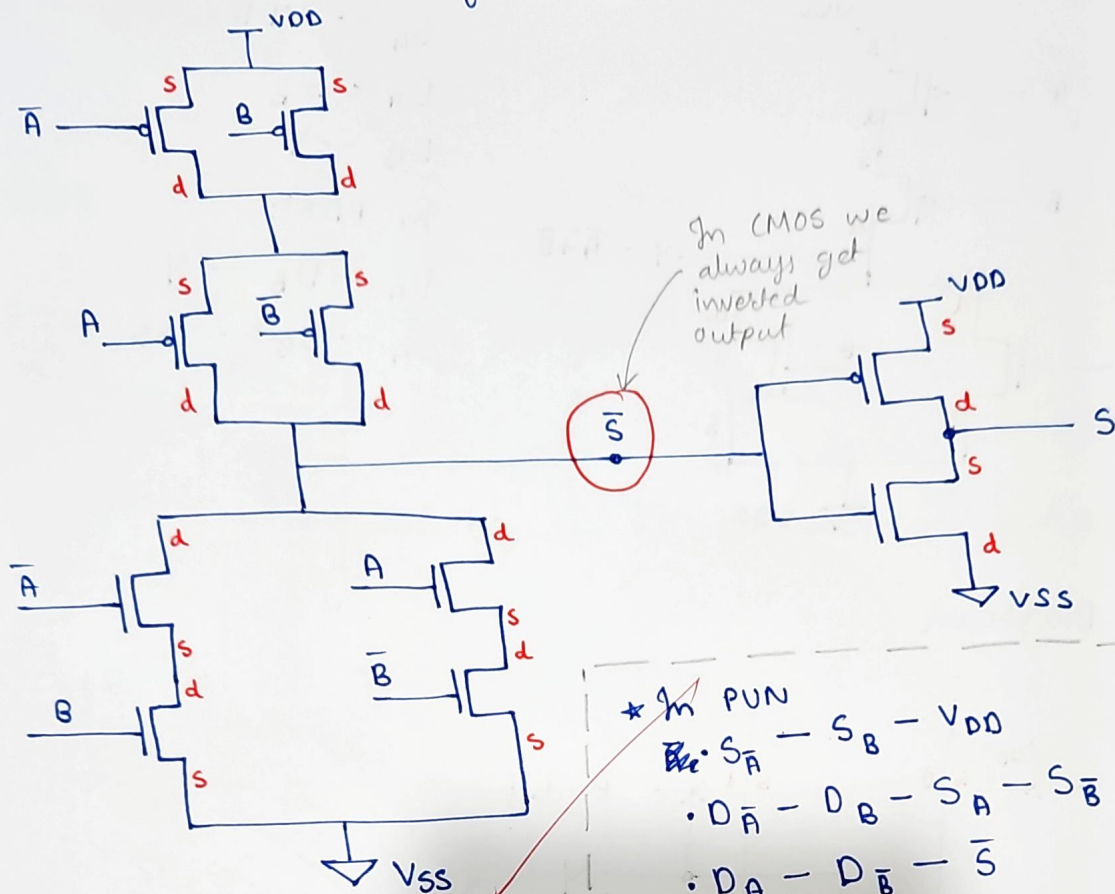 VDD
s s
A̅ B
d d
s s
A B̅
d d
In CMOS we
always get
inverted
output
S̅
VDD
s
d
S
s
d
VSS
d d
A̅ A
s s
d d
B B̅
s s
VSS
★ In PUN
• S_A̅ – S_B – V_DD
• D_A̅ – D_B – S_A – S_B̅
• D_A – D_B̅ – S̅